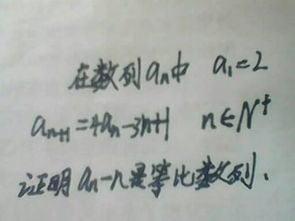 在数列an中 a₁=2
aₙ₊₁=4aₙ-3n+1 n∈N⁺
证明aₙ-n是等比数列、